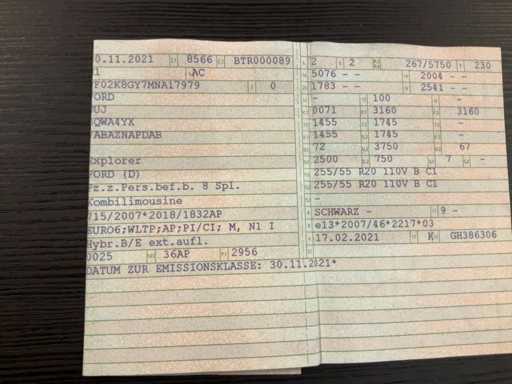 0.11.2021 8566 BTR000089
1 AC
F02K8GY7MNA17979 0
ORD
UJ
QWA4YX
7ABAZNAPDAB
Explorer
FORD (D)
Fz.z.Pers.bef.b. 8 Spl.
Kombilimousine
715/2007*2018/1832AP
EURO6;WLTP;AP;PI/CI; M, N1 I
Hybr.B/E ext.aufl.
0025 36AP 2956
DATUM ZUR EMISSIONSKLASSE: 30.11.2021*
2 2 267/5750 230
5076 - - 2004 - -
1783 - - 2541 - -
- 100 -
0071 3160 3160
1455 1745 -
1455 1745 -
72 3750 67
2500 750 7 -
255/55 R20 110V B C1
255/55 R20 110V B C1
-
SCHWARZ - 9 -
e13*2007/46*2217*03
17.02.2021 K GH386306